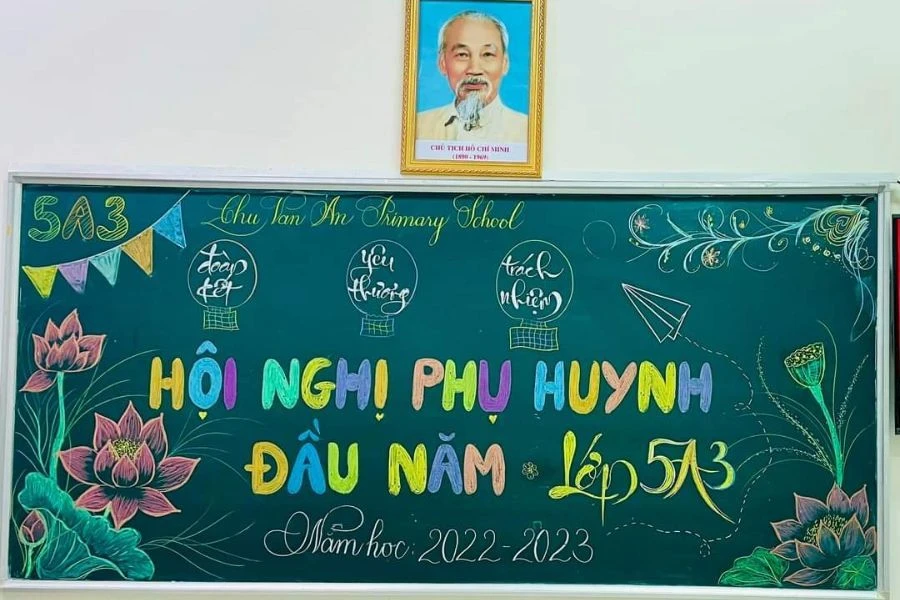 CHỦ TỊCH HỒ CHÍ MINH
(1890 - 1969)
5A3
Chu Van An Primary School
đoàn kết
yêu thương
trách nhiệm
HỘI NGHỊ PHỤ HUYNH
ĐẦU NĂM Lớp 5A3
Năm học: 2022-2023